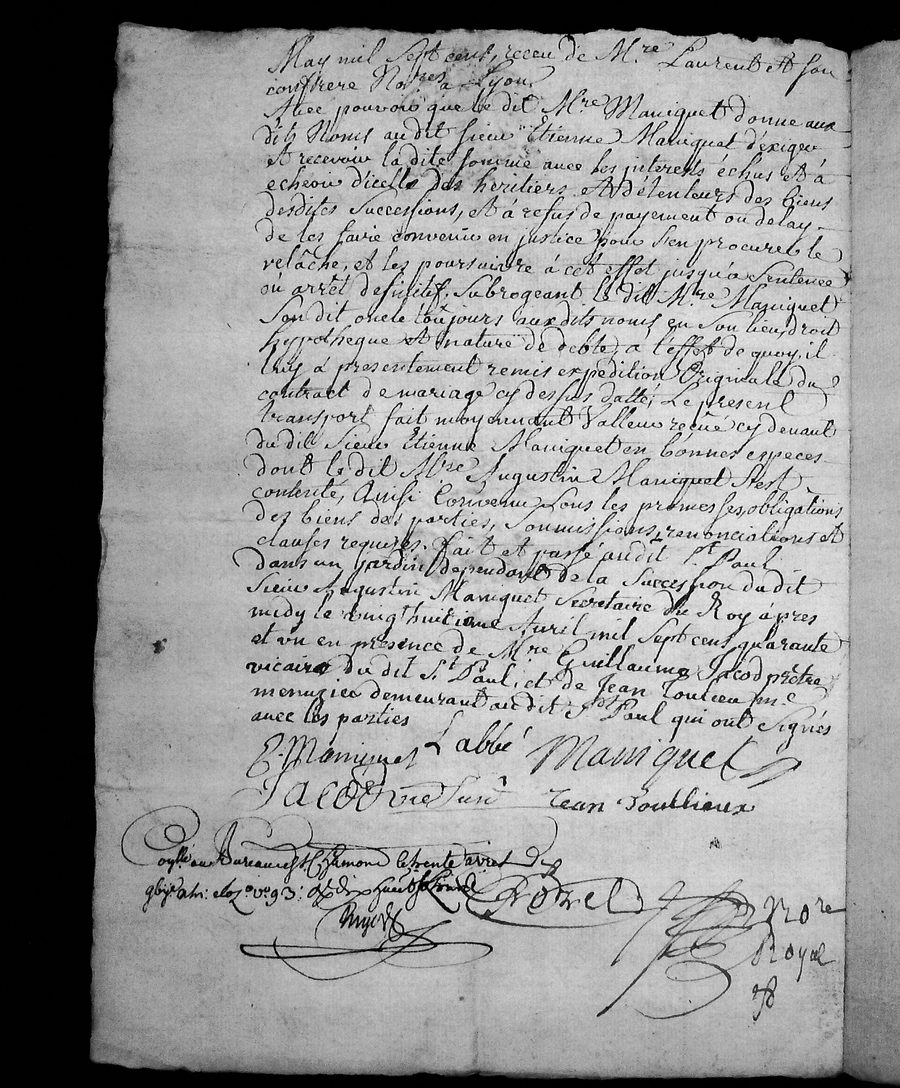 May mil sept cens, receu de M.re Laurent et son
confrere No.res a Lyon
Avec pouvoir que le dit M.re Maniquet donne aux
dits Noms au dit sieur Etienne Maniquet d'exiger
et recevoir la dite somme avec les interests échus et á
echeoir d'icelle des héritiers et détenteurs des biens
desdites successions, et á refus de payement ou delay
de les faire convenir en justice pour s'en procurer le
relâche, et les poursuivre á cet effet jusqu'a sentence
ou arret definitif. Subrogeant le dit M.re Maniquet
son dit oncle toujours aux dits noms en son lieu, droit
hypotheque et nature de debte, a l'effet de quoy, il
luy á presentement remis expedition originale du
contract de mariage cy dessus datté; Le present
transport fait moyennant valleur reçuë cy devant
du dit Sieur Etienne Maniquet en bonnes especes
dont le dit M.re Augustin Maniquet s'est
contenté, Ainsi convenu sous les promesses, obligations
des biens des parties, soumissions, renonciations et
clauses requises. fait et passé audit S.t Paul
dans un jardin dependant de la succession du dit
Sieur Augustin Maniquet Secretaire du Roy ápres
midy le vingt huitieme Avril mil sept cens quarante
et un en presence de M.re Guillaume Jacod prêtre
vicaire du dit S.t Paul, et de Jean Toulieu me
menuzier demeurant au dit S.t Paul qui ont signés
avec les parties
E. Maniquet L'abbé Maniquet
Jacod vic
Jean Toullieux
au Bureau de St Chamond le trente avril
Royal